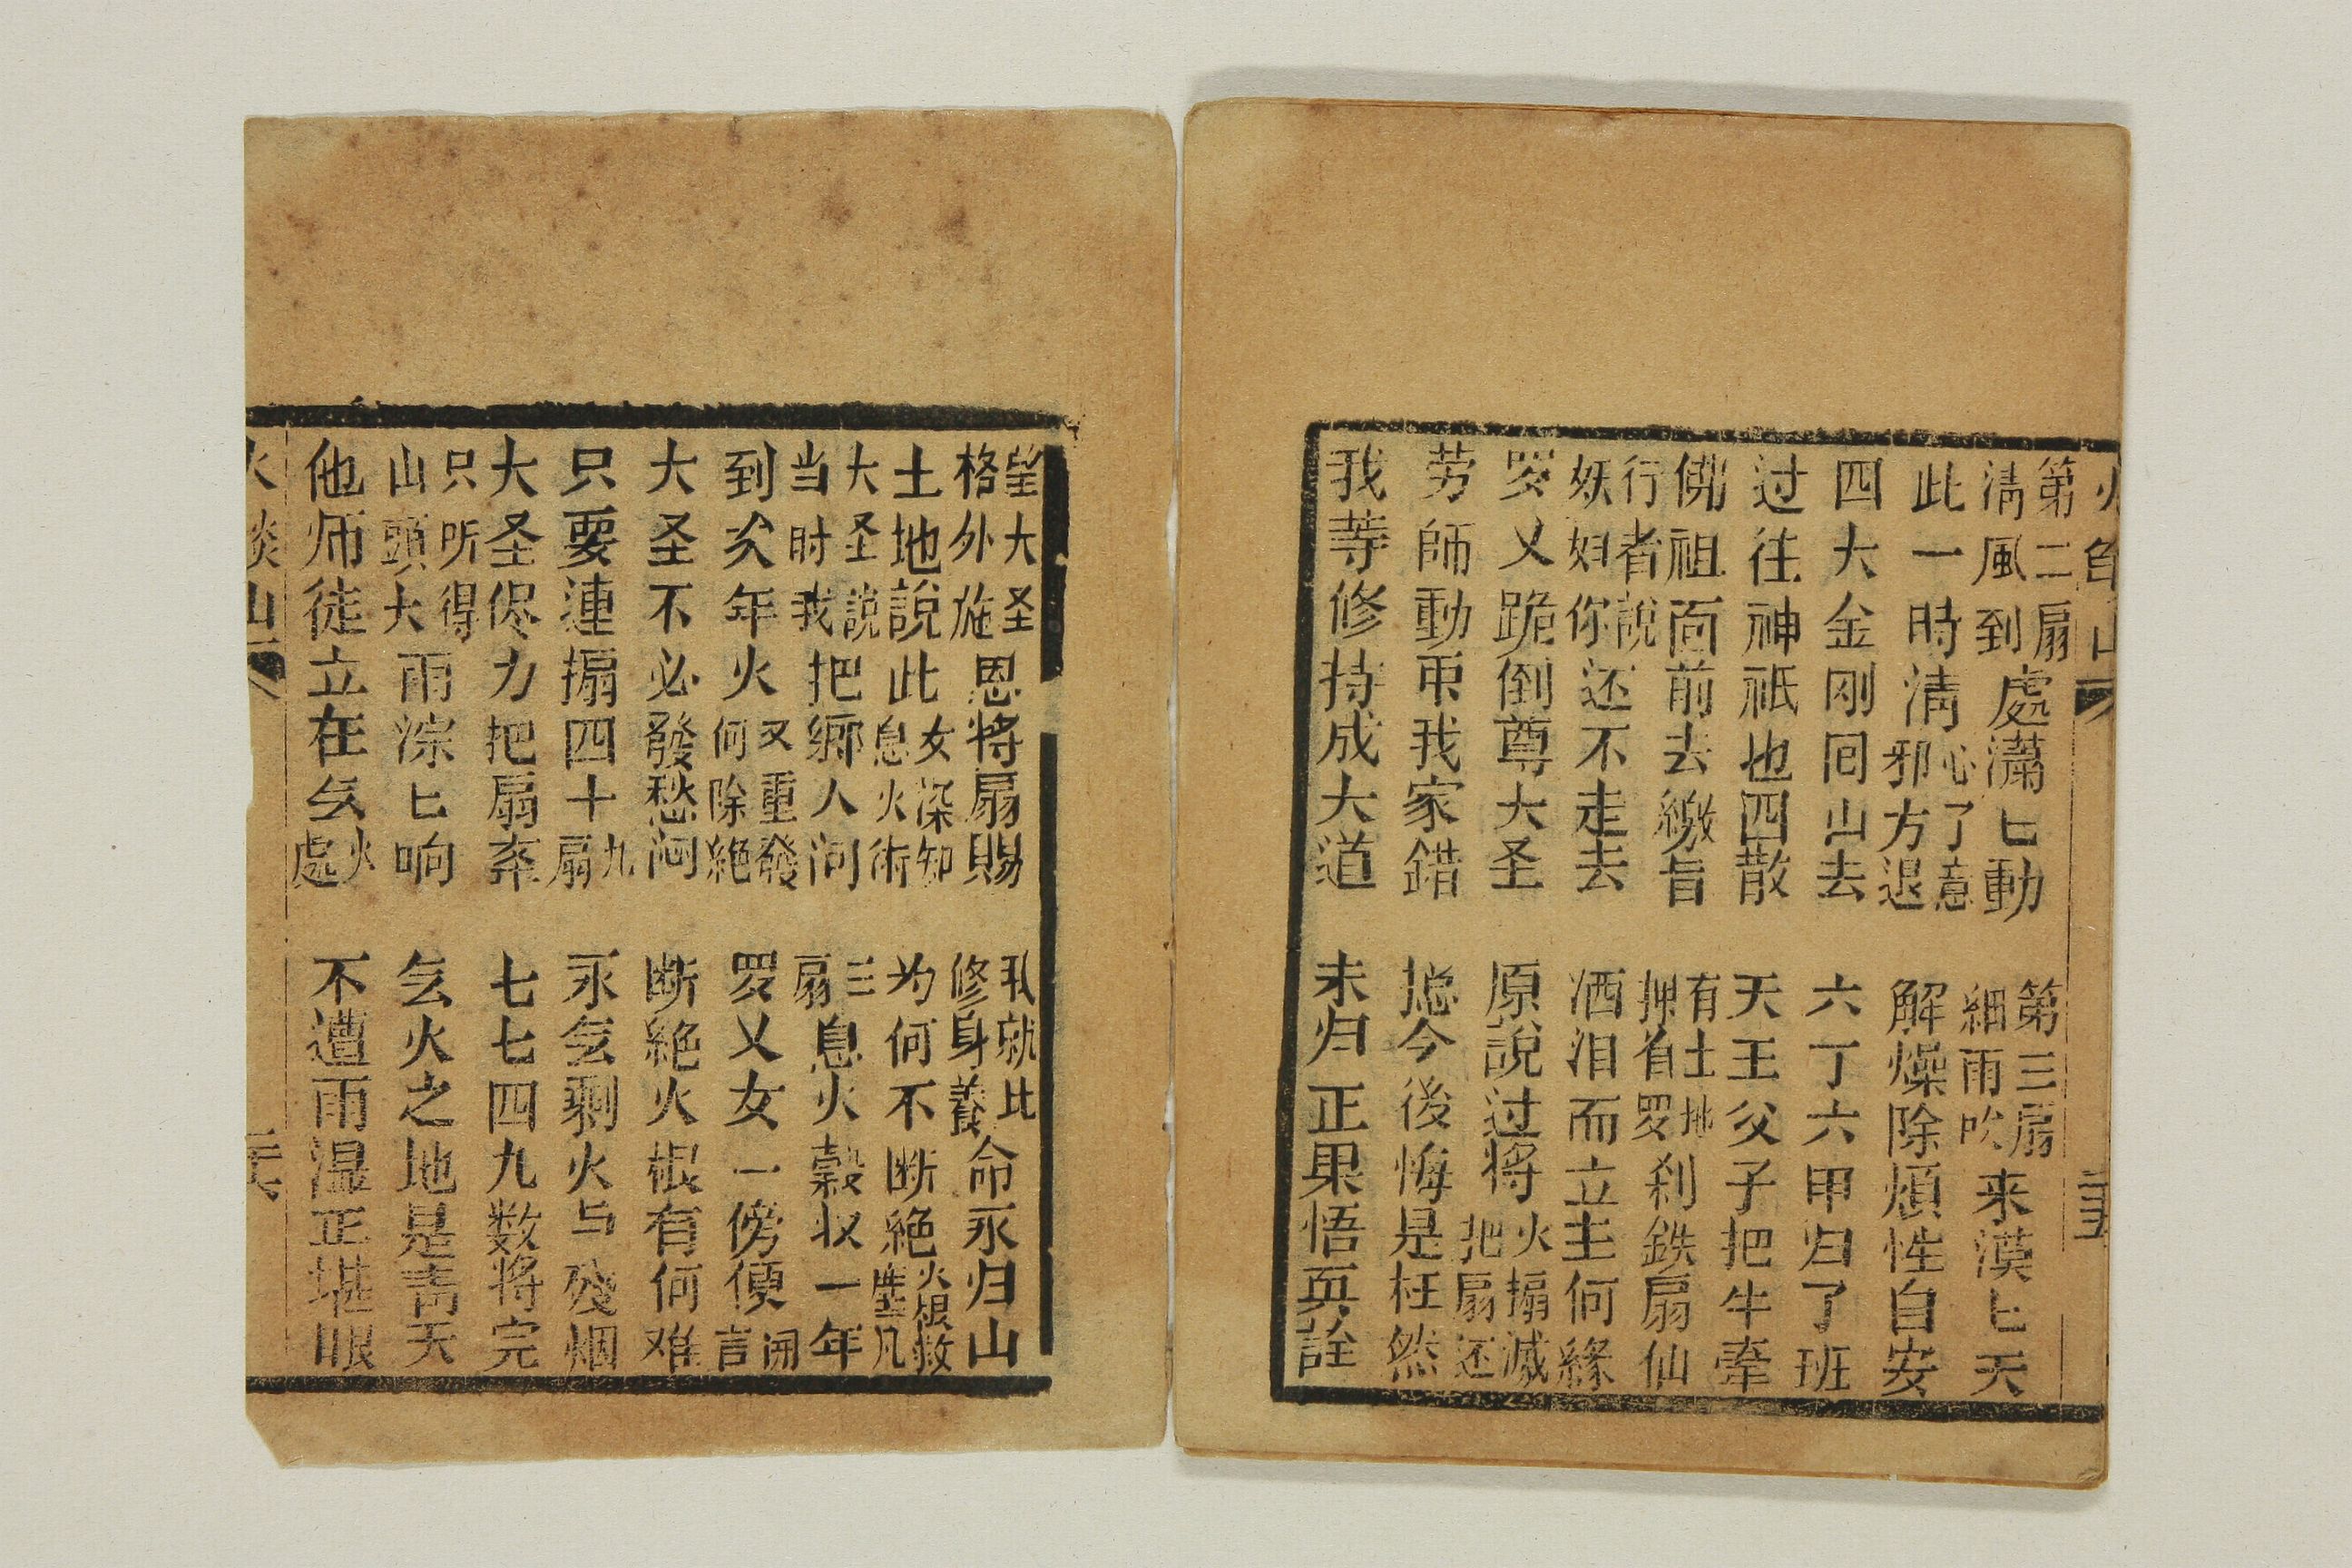 火焰山 二五
第二扇清風到處瀟匕動 第三扇細雨吹来漠匕天
此一時清心了意邪方退 解燥除煩性自安
四大金刚囘山去 六丁六甲归了班
过往神祇也四散 天王父子把牛牽
佛祖面前去繳旨 有土地押着罗刹鉄扇仙
行者說妖妇你还不走去 洒泪而立主何緣
罗乂跪倒尊大圣 原說过将火搧滅把扇还
劳師動我家錯 搃今後悔是枉然
我等修持成大道 未归正果悟真詮
望大圣格外施恩将扇賜 我就此修身養命永归山
土地說此女深知息火術 为何不断絶火根救塵凡
大圣說当时我把鄉人问 三扇息火穀収一年
到次年火又重發何除絶 罗乂女一傍便開言
大圣不必發愁闷 断絶火根有何难
只要連搧四十九扇 永旡剩火与残烟
大圣侭力把扇 七七四九数将完
只听得山頭大雨淙匕响 旡火之地是青天
他师徒立在旡火處 不遭雨湿正堪眼
火焰山 二六